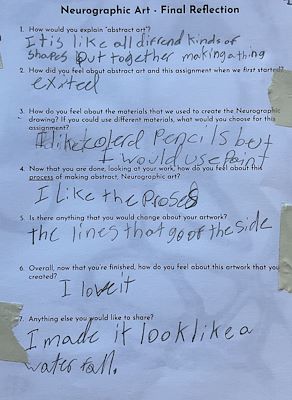 Neurographic Art - Final Reflection
1. How would you explain "abstract art"?
It is like all differend kinds of
shapes put together making a thing
2. How did you feel about abstract art and this assignment when we first started?
exiteel
3. How do you feel about the materials that we used to create the Neurographic
drawing? If you could use different materials, what would you choose for this
assignment?
I like colerd Pencils best
I would use Paint
4. Now that you are done, looking at your work, how do you feel about this
process of making abstract, Neurographic art?
I Like the Proses
5. Is there anything that you would change about your artwork?
the lines that go of the side
6. Overall, now that you're finished, how do you feel about this artwork that you
created?
I love it
7. Anything else you would like to share?
I made it look like a
water fall.